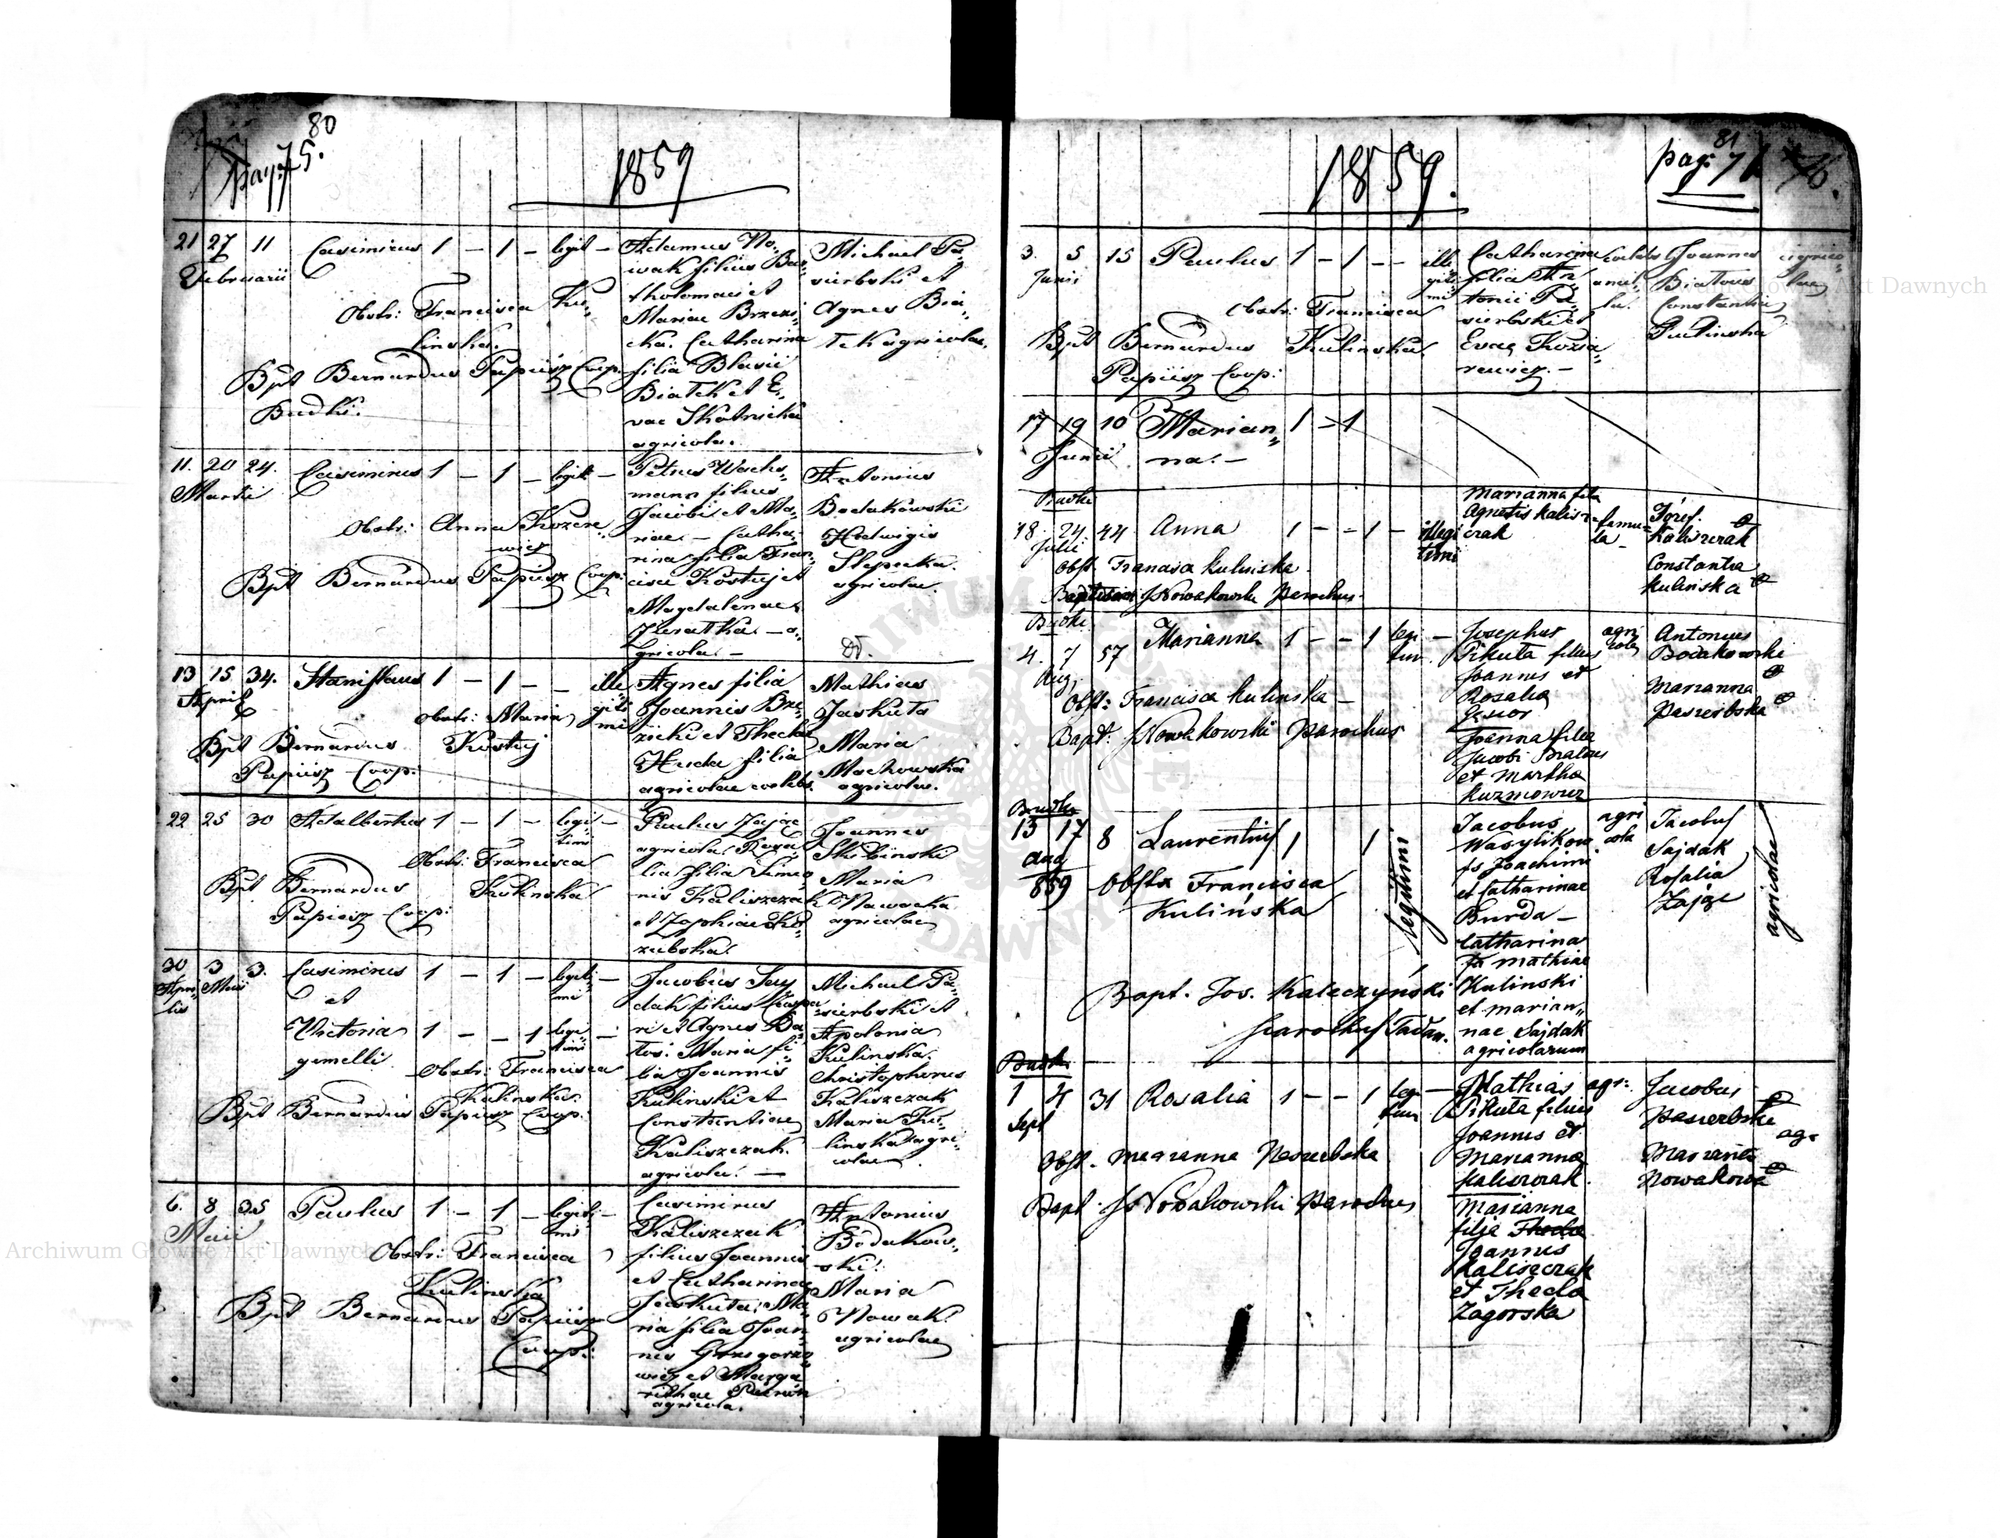 80
pag. 75.
1859
21 27 11 Casimirus 1 – 1 – legit – Adamus No-
Februarii
wak filius Bar-
tholomaei et
Mariae Brzezi-
cka. Catharina
filia Blasii
Białek et E-
vae Skotnicka
agricola.
Michael Pa-
sierbski et
Agnes Bia-
łek agricolae.
Obstr: Francisca Ku-
linska.
Bpt Bernardus Papiesz Coop:
Budki.
11. 20 24. Casimirus 1 – 1 – legit – Petrus
Martii
mann filius
Jacobi et Ma-
riae – Catha-
rina filia Fran-
cisci Kostuj et
Magdalenae
– a-
gricola. –
Antonius
Bodakowski
Hedwigis
agricolae.
Obstr: Anna
Bpt Bernardus Papiesz Coop:
13 15 34. Stanislaus 1 – 1 – – ille-
giti-
mi
April
Agnes filia
Joannis Brze-
zicki et Theclae
Huda filia
agricolae coelebs.
Mathias
Jaskuła
Maria
Machowska
agricolae.
Obstr: Maria
Kostuj
Bpt Bernardus
Papiesz Coop:
22 25 30 Adalbertus 1 – 1 – legit-
timi
Paulus Zając
agricola Rosa-
lia filia Simeo-
nis Kaliszczak
et Zophiae Ko-
zubska.
Joannes
Skibinski
Maria
Nawocka
agricolae
Obstr: Francisca
Kulinska
Bpt Bernardus
Papiesz Coop:
30 3 3. Casimirus 1 – 1 – legiti-
mi
Apri-
lis
Maii
et
Victoria 1 – – 1 legi-
timi
gemelli
Jacobus Say-
dak filius Caspa-
ri et Agnes Ba-
tos. Maria fi-
lia Joannis
Kulinski et
Constantiae
Kaliszczak.
agricola. –
Michael Pa-
sierbski et
Apolonia
Kulinska.
Christophorus
Kaliszczak
Maria Ku-
linska agri-
colae
Obstr: Francisca
Kulinska.
Bpt Bernardus Papiesz Coop:
6. 8 35 Paulus 1 – 1 – legiti-
mi
Maii
Casimirus
Kaliszczak
filius Joannis
et Catharinae
Jaskuła, Ma-
ria filia Joan-
nis Grzegorze-
wicz et Marga-
rethae
agricola.
Antonius
Bodakow-
ski.
Maria
Nowak
agricolae
Obstr: Francisca
Kulinska
Bpt Bernardus Papiesz
Coop:
81
pag. 71 76.
1859.
3. 5 15 Paulus 1 – 1 – – ille
giti
mi
Junii
Catharina
filia An-
tonii Pa-
sierbski et
Evae Kozia-
rewicz. –
coelebs
famu-
la.
Joannes
Białous
Constantia
Pulinska
agrico-
lae
Obstr: Francisca
Kulinska
Bpt Bernardus
Papiesz Coop:
17 19 10 Marian- 1 – 1
Junii na. –
Budki
18. 24. 44 Anna 1 – – 1 – illegi
timi
Julii
Marianna filia
Agnetis Kalisz-
czak
famu-
la –
Józef
Kaliszczak
Constantia
Kulinska
Obst. Francisca Kulinska
Baptisavit JNowakowski Parochus.
Budki
4. 7 57 Marianna 1 – – 1 legi
tim. –
Aug.
Josephus
Pikuta filius
Joannis et
Rosalia
Gąsior
Joanna filia
Jacobi Białous
et Martha
Kuzmowicz
agri
cola
Antonius
Bodakowski
Marianna
Pasierbska
Obst: Francisca Kulinska –
Bapt: JNowakowski Parochus
Budki
13 17 8 Laurentius 1 1 legitimi
Aug
859
Jacobus
Wasylikow
fs Joachimi
et Catharinae
Burda –
Catharina
fa Mathiae
Kulinski
et Marian-
nae Sajdak
agricolarum
agri
cola
Jacobus
Sajdak
Rosalia
Zając
agricolae
Obstx Francisca
Kulińska
Bapt. Jos. Kaleczyński
Parochus Tadan.
Budki
1 4 31 Rosalia 1 – – 1 leg –
tim
Sept
Mathias
Pikuta filius
Joannis et
Marianna
Kaliszczak.
Marianna
filia Thecla
Joannis
Kaliszczak
et Thecla
Zagorska
agr:
Jacobus
Pasierbski
Marianna
Nowakowa
agr
Obst. Marianna Pasierbska
Bapt JNowakowski Parochus
Archiwum Główne Akt Dawnych
Archiwum Główne Akt Dawnych